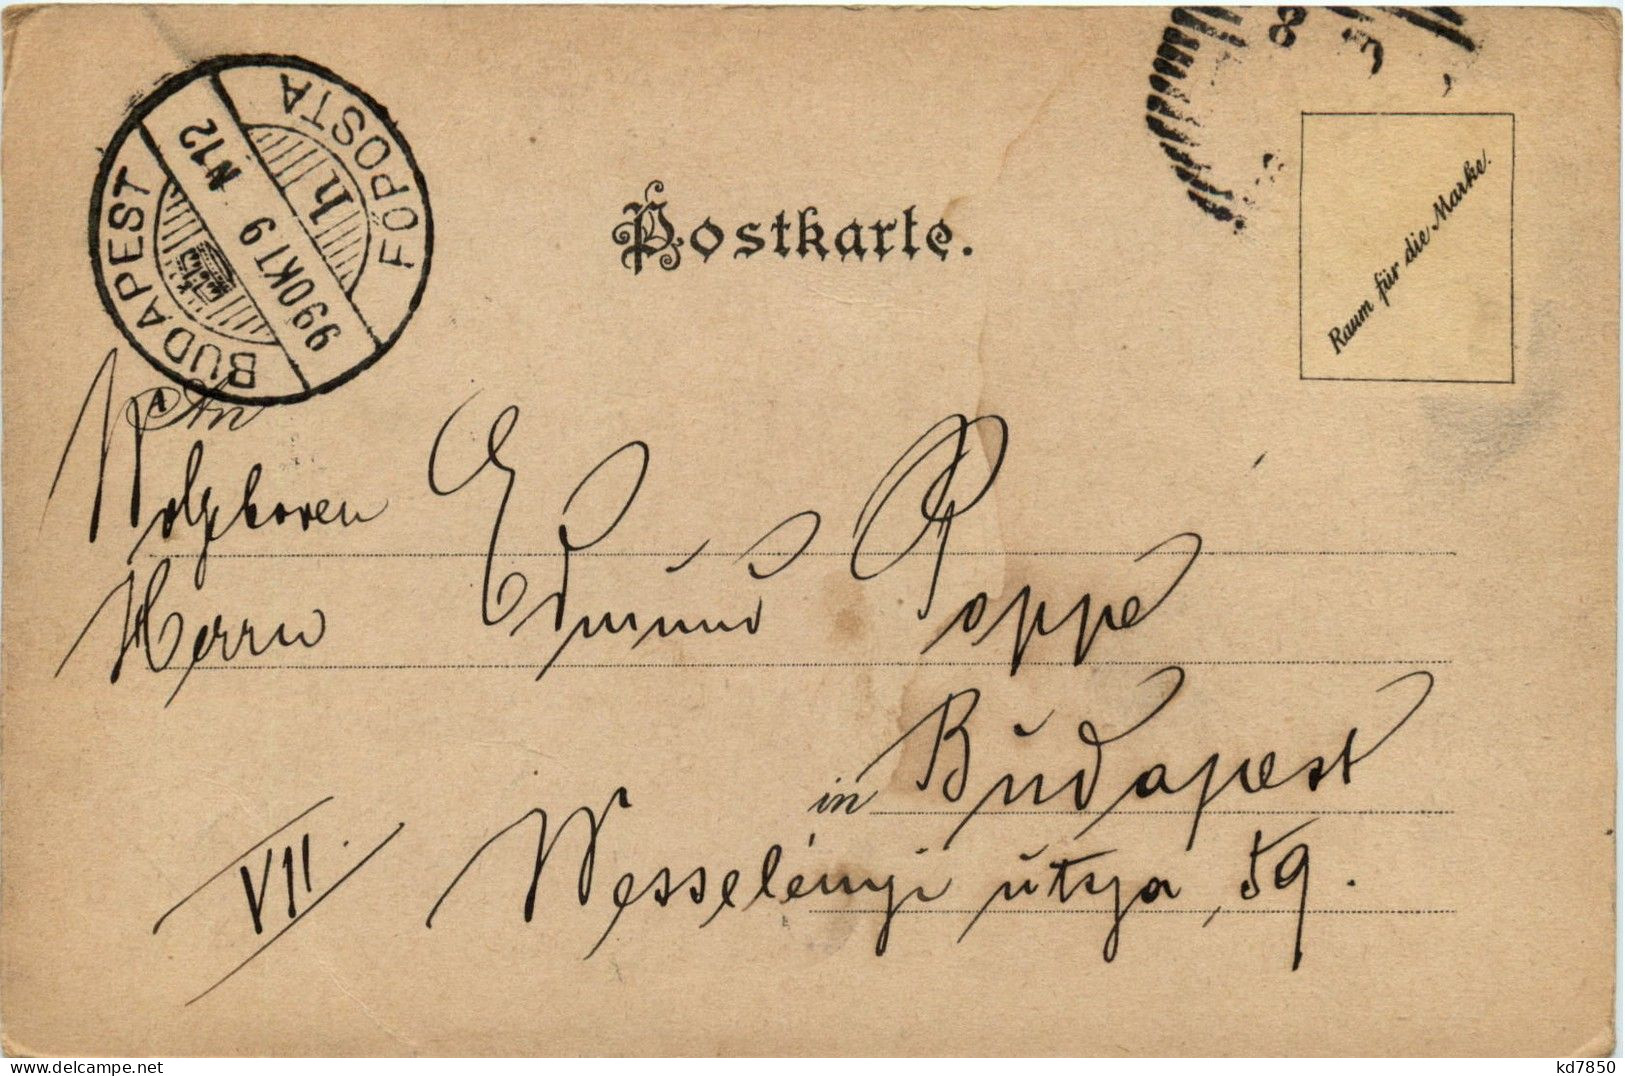 BUDAPEST
FŐPOSTA
99 OKT 9
N12
h
8 5
Postkarte.
Raum für die Marke.
An
Wolgeboren
Herrn Edmund Poppe
in Budapest
VII. Wesselényi útsza, 59.
kd7850